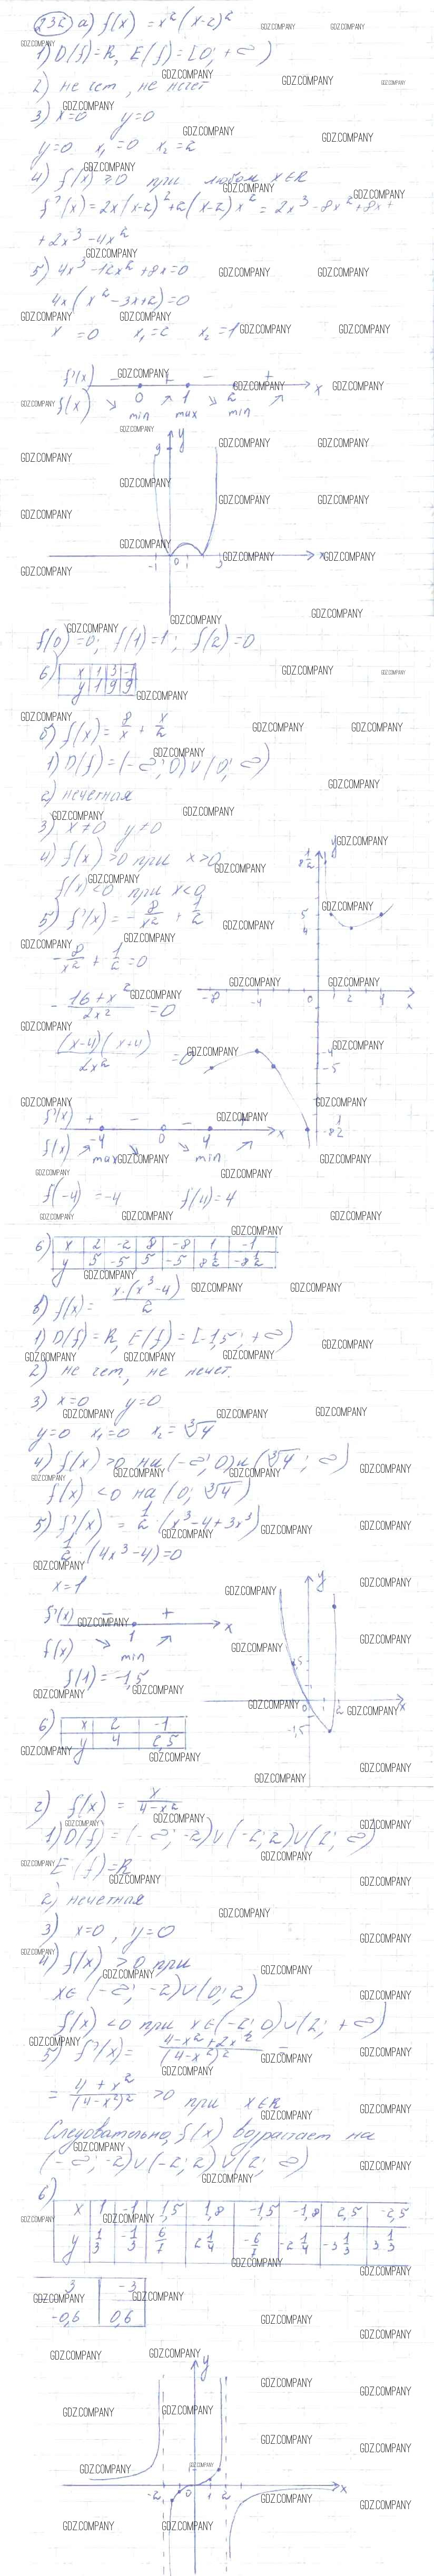 232 а) f(x) = x²(x-2)²
1) D(f)=R, E(f)=[0; +∞)
2) не чет, не нечет
3) x=0 y=0
y=0 x₁=0 x₂=2
4) f(x) ≥0 при любом x∈R
f'(x)=2x(x-2)²+2(x-2)x² = 2x³-8x²+8x+
+2x³-4x²
5) 4x³-12x²+8x=0
4x(x²-3x+2)=0
x=0 x₁=2 x₂=1
f'(x) - + - + x
f(x) ↘ 0 ↗ 1 ↘ 2 ↗
min max min
9 y
-1 0 1 3 x
f(0)=0; f(1)=1; f(2)=0
6) x 1 3 -1
y 1 9 9
б) f(x)= 8/x + x/2
1) D(f)=(-∞; 0)∪(0; ∞)
2) нечетная
3) x≠0 y≠0
4) f(x)>0 при x>0
f(x)<0 при x<0
5) f'(x)= -8/x² + 1/2
-8/x² + 1/2 =0
(-16+x²)/2x² =0
(x-4)(x+4)/2x² =0
y 8 1/2 5 4
-8 -4 0 2 4 x
-4 -5 -8 1/2
f'(x) + - - + x
f(x) ↗ -4 ↘ 0 ↘ 4 ↗
max min
f(-4) =-4 f(4)=4
6) x 2 -2 8 -8 1 -1
y 5 -5 5 -5 8 1/2 -8 1/2
в) f(x)= x·(x³-4)/2
1) D(f)=R, E(f)=[-1,5; +∞)
2) не чет, не нечет.
3) x=0 y=0
y=0 x₁=0 x₂=∛4
4) f(x)>0 на (-∞; 0) и (∛4; ∞)
f(x)<0 на (0; ∛4)
5) f'(x) = 1/2·(x³-4+3x³)
1/2·(4x³-4)=0
x=1
f'(x) - + x
f(x) ↘ 1 ↗
min
f(1)=-1,5
y
0 1 2 x
-1,5
6) x 2 -1
y 4 2,5
г) f(x) = x/(4-x²)
1) D(f)=(-∞; -2)∪(-2; 2)∪(2; ∞)
E(f)=R
2) нечетная
3) x=0, y=0
4) f(x)>0 при
x∈(-∞; -2)∪(0; 2)
f(x)<0 при x∈(-2; 0)∪(2; +∞)
5) f'(x)= (4-x²+2x²)/(4-x²)² =
= (4+x²)/(4-x²)² >0 при x∈R
Следовательно, f(x) возрастает на
(-∞; -2)∪(-2; 2)∪(2; ∞)
6)
x 1 -1 1,5 1,8 -1,5 -1,8 2,5 -2,5
y 1/3 -1/3 6/7 2 1/4 -6/7 -2 1/4 -3 1/3 3 1/3
3 -3
-0,6 0,6
y
-2 0 1 2 x
GDZ.COMPANY